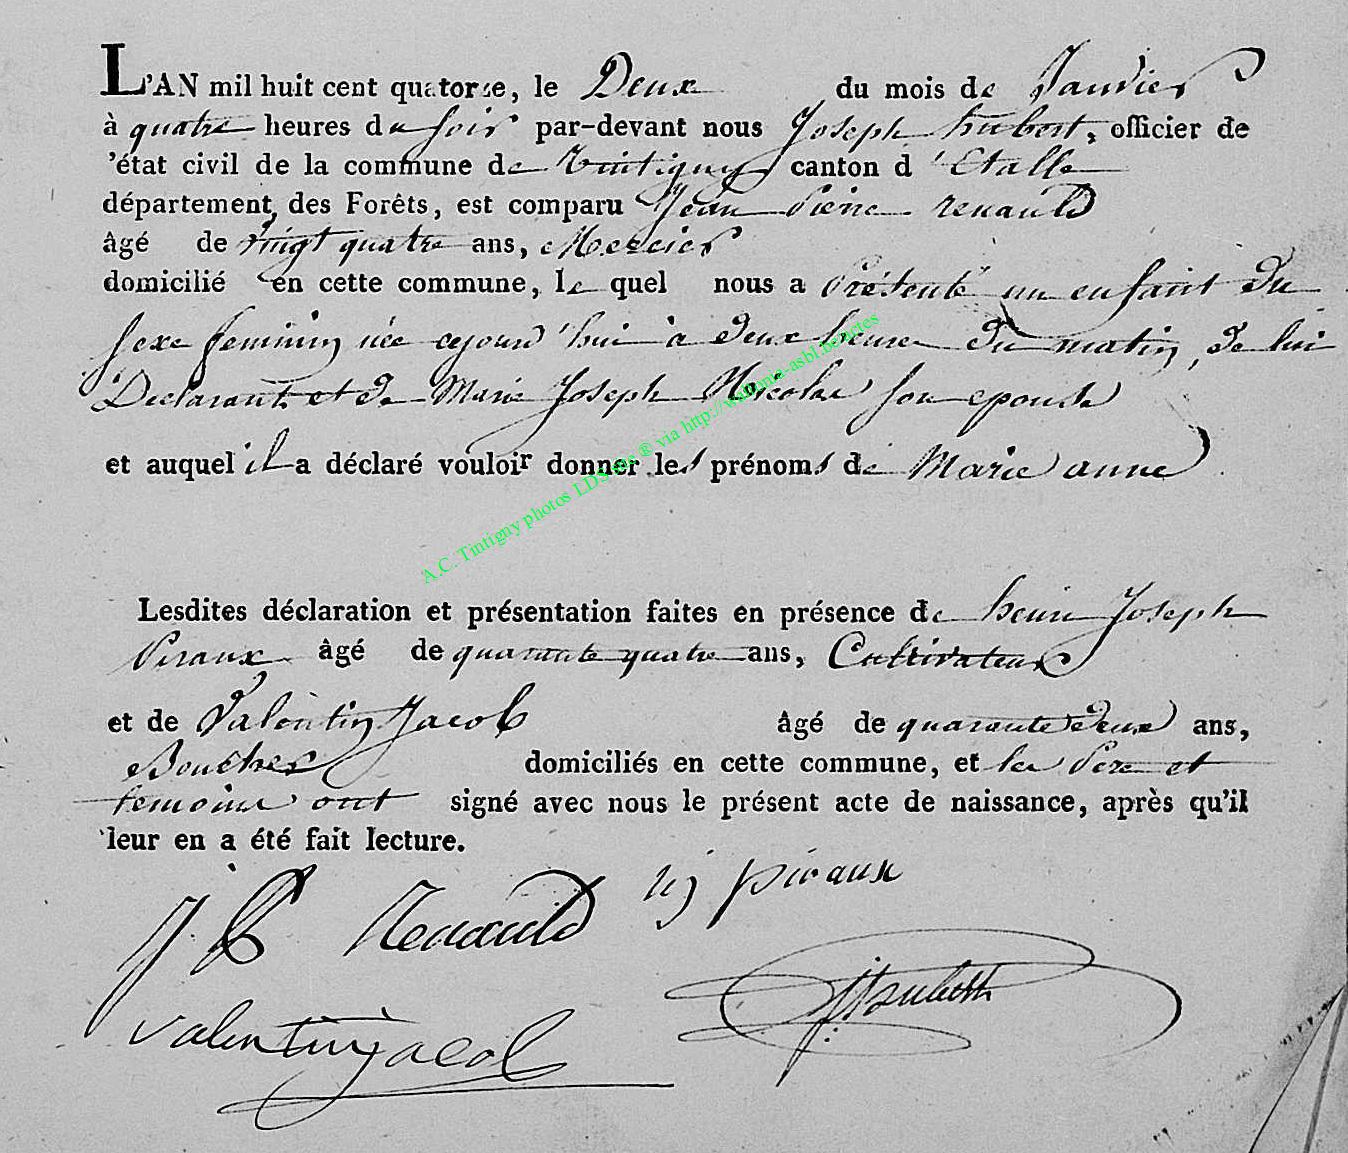 L'AN mil huit cent quatorze, le Deux du mois de Janvier
à quatre heures du soir par-devant nous Joseph hubert, officier de
'état civil de la commune de Tintigny canton d'Etalle
département des Forêts, est comparu Jean Pierre renauld
âgé de vingt quatre ans, Mercier
domicilié en cette commune, le quel nous a Présenté un enfant du
sexe feminin née cejourd'hui à deux heures du matin, de lui
Déclarant et de Marie Joseph Nicolas son epouse
et auquel il a déclaré vouloir donner les prénoms de Marie anne
A.C. Tintigny photos LDS via http://wallonia-asbl.be/actes
Lesdites déclaration et présentation faites en présence de henri Joseph
Piraux âgé de quarante quatre ans, Cultivateur
et de Valentin Jacob âgé de quarante deux ans,
Boucher domiciliés en cette commune, et les Père et
temoins ont signé avec nous le présent acte de naissance, après qu'il
leur en a été fait lecture.
J P Renauld hj piraux
valentin jacob JHubert